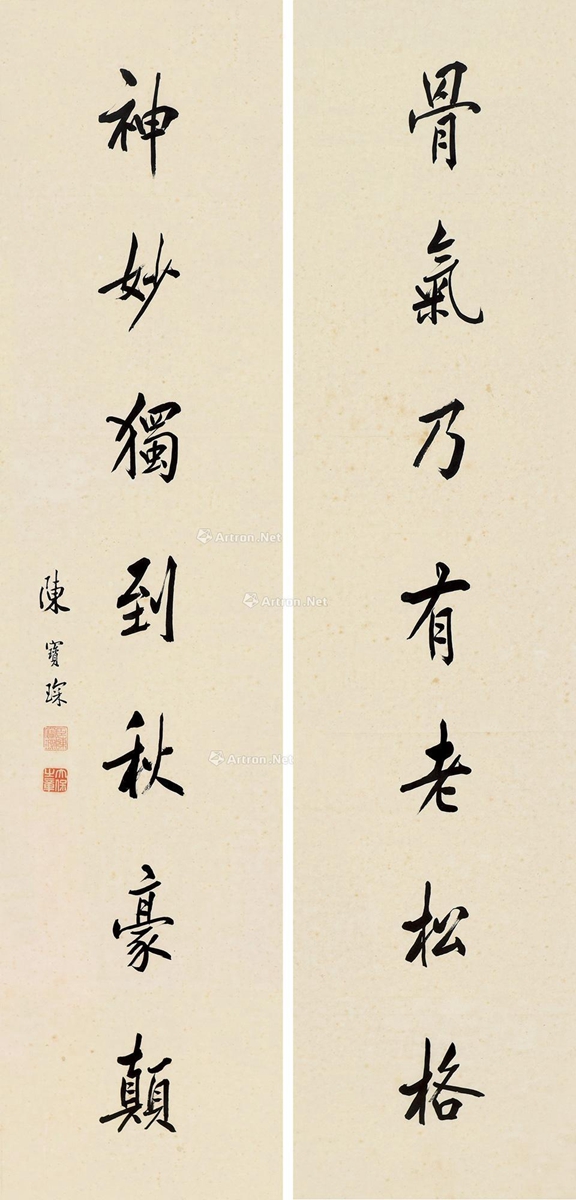 骨氣乃有老松格
神妙獨到秋豪顛
陳寶琛
Artron.Net
Artron.Net
Artron.Net